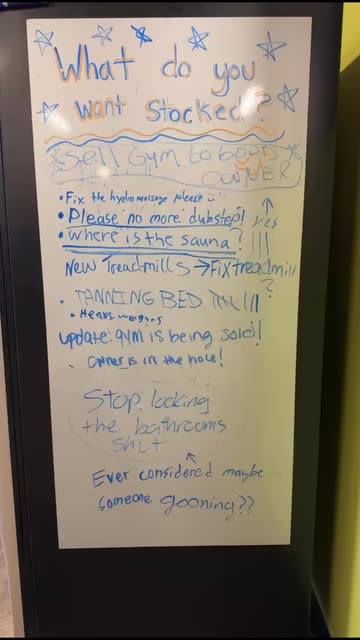 What do you
want Stocked?
Sell Gym to good
OWNER
• Fix the hydromassage please :)
• Please no more dubstep! yes
• Where is the sauna? |||
New Treadmills → Fix treadmill
?
• TANNING BED
• Heavy weights
update: gym is being sold!
Owner is in the hole!
Stop locking
the bathrooms
shut
Ever considered maybe
someone gooning??